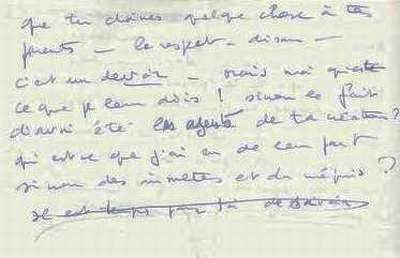 que tu doives quelque chose à tes
parents – le respect – disons –
c'est un devoir – mais moi qu'est
ce que je leur dois ! sinon le fait
d'avoir été les agents de ta création ?
qui est ce que j'ai eu de leur part
sinon des insultes et du mépris ?